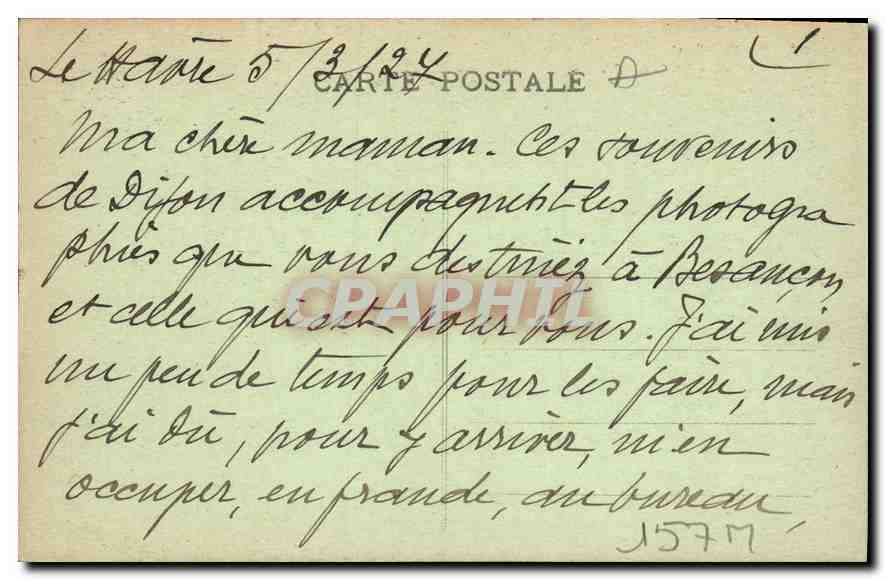 1
Le Havre 5/3/27
CARTE POSTALE
Ma chère maman. Ces souvenirs
de Dijon accompagnent les photogra
phies que vous destiniez à Besançon
et celle qui est pour vous. J'ai mis
un peu de temps pour les faire, mais
j'ai dû, pour y arriver, m'en
occuper, en fraude, au bureau,
157M
CPAPHIL